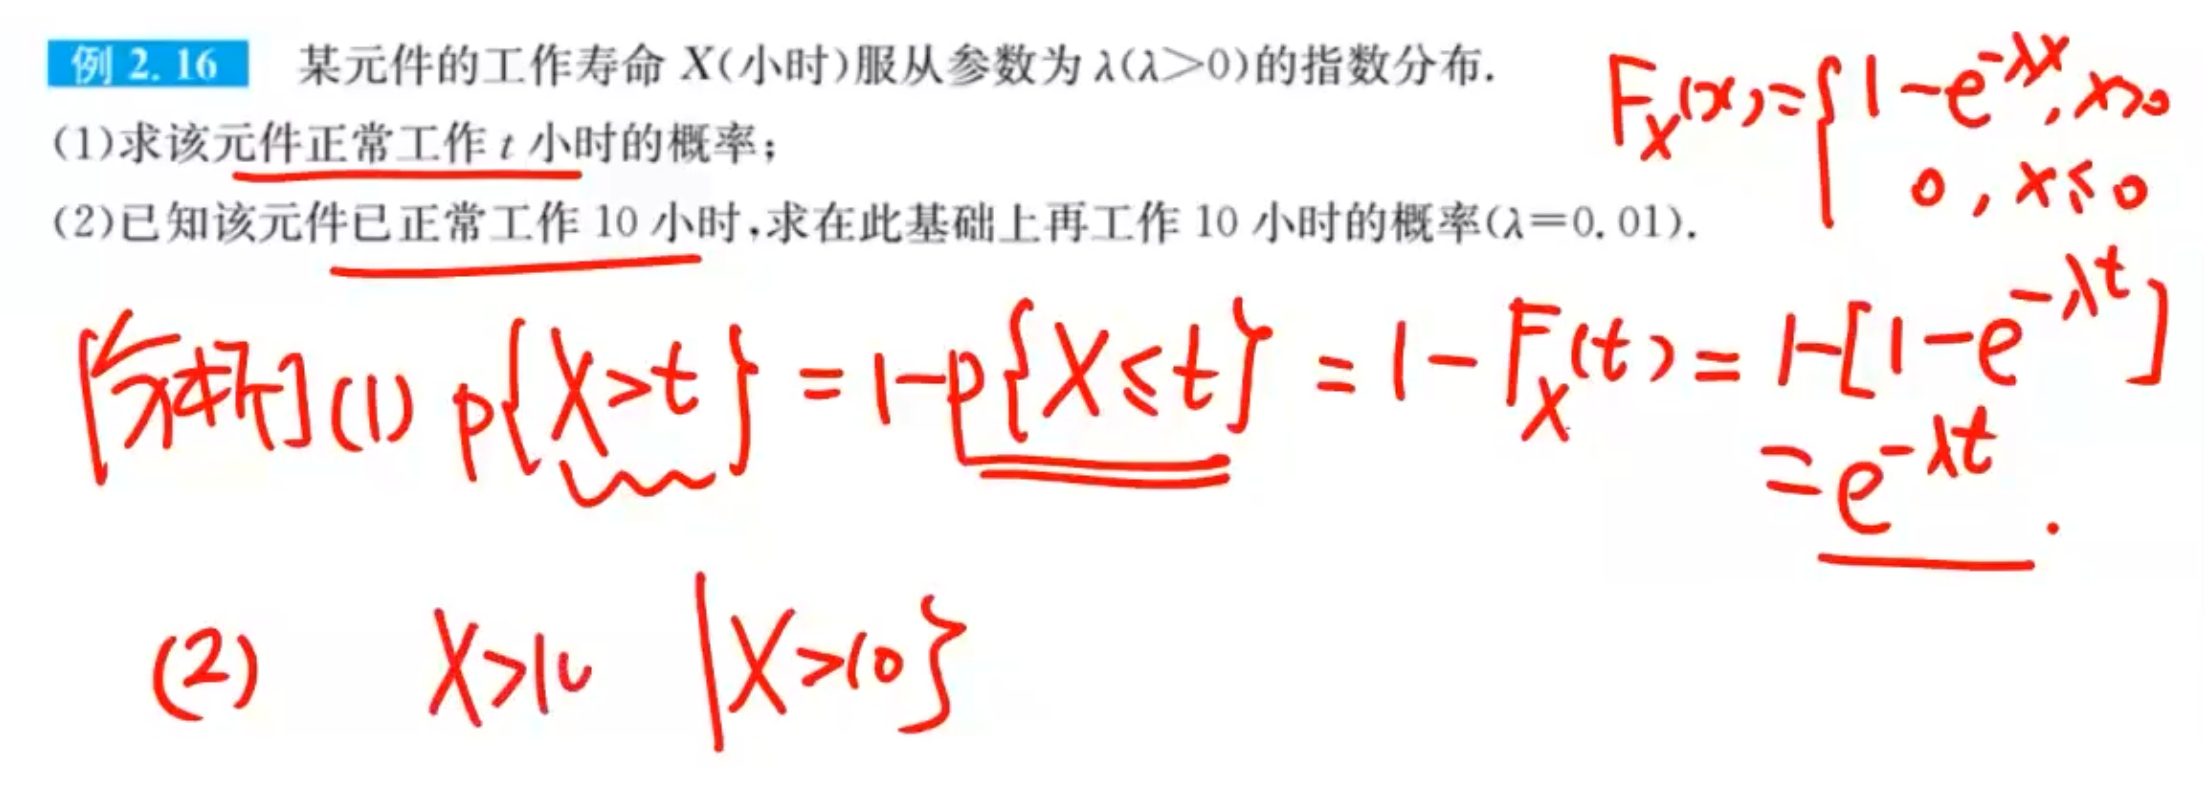 例 2.16 某元件的工作寿命 X(小时)服从参数为 λ(λ>0)的指数分布.
(1)求该元件正常工作 t 小时的概率;
(2)已知该元件已正常工作 10 小时,求在此基础上再工作 10 小时的概率(λ=0.01).
F_X(x)={1-e^{-λx}, x>0
0, x≤0
[分析](1) P{X>t}=1-P{X≤t}=1-F_X(t)=1-[1-e^{-λt}]
=e^{-λt}.
(2) X>10 |X>10}